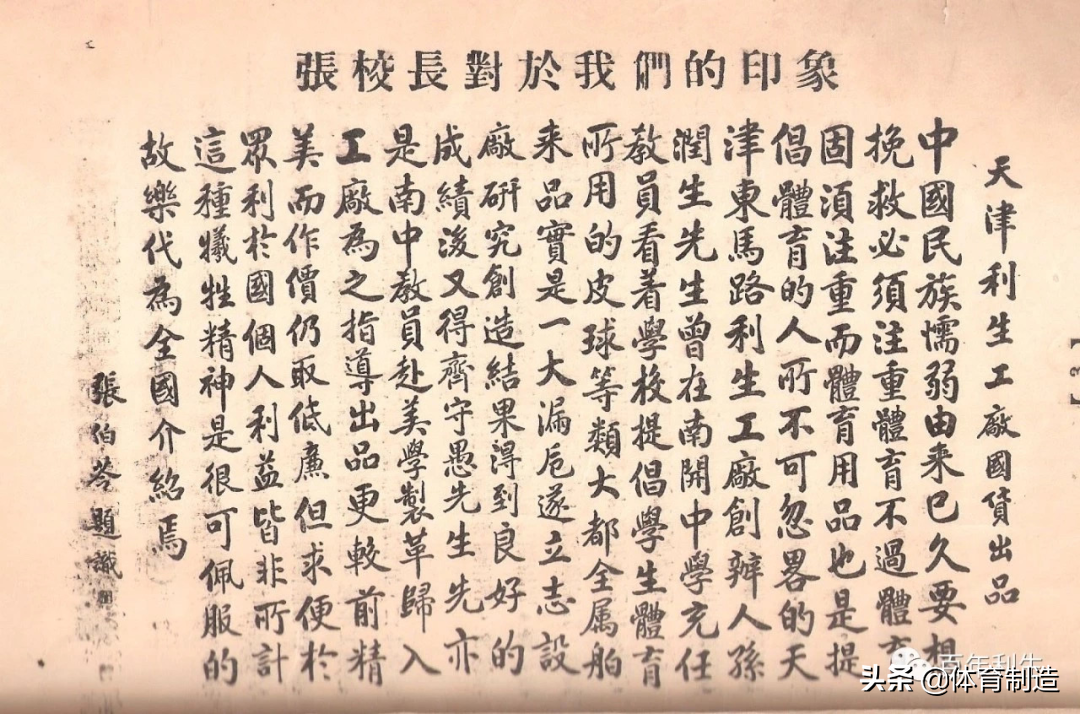 張校長對於我們的印象
天津利生工廠國貨出品
中國民族懦弱由来已久要想
挽救必須注重體育不過體育
固須注重而體育用品也是提
倡體育的人所不可忽畧的天
津東馬路利生工廠創辦人孫
潤生先生曾在南開中學充任
教員看着學校提倡學生體育
所用的皮球等類大都全属舶
来品實是一大漏卮遂立志設
廠研究創造結果得到良好的
成績後又得齊守愚先生先亦
是南中教員赴美學製革歸入
工廠為之指導出品更較前精
美而作價仍取低廉但求便於
眾利於國個人利益皆非所計
這種犧牲精神是很可佩服的
故樂代為全國介紹焉
張伯苓題識
【3】
百年利生
头条 @体育制造